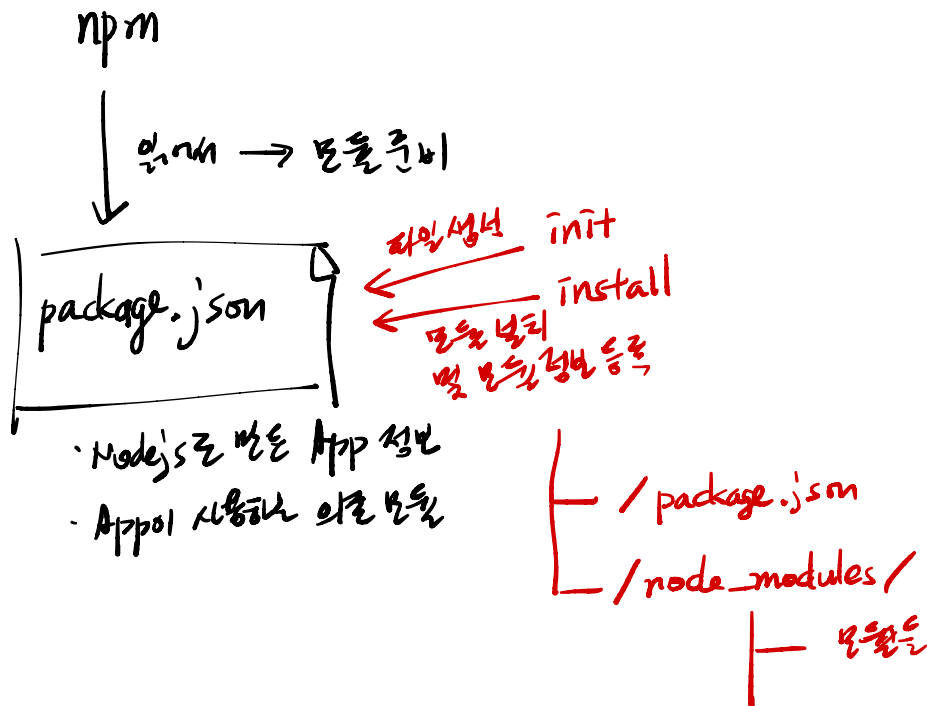 npm
읽어서 → 모듈준비
파일생성 init
package.json
install
모듈 설치
및 모듈정보 등록
· Nodejs로 만든 App 정보
· App이 사용하는 의존 모듈
/package.json
/node_modules/
모듈들